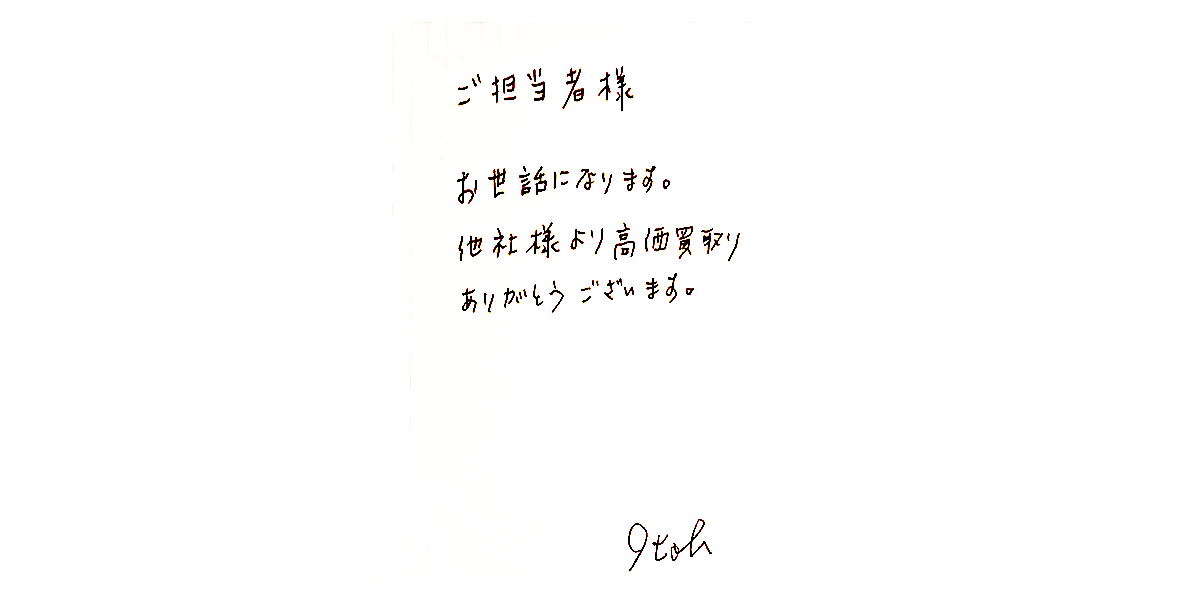 ご担当者様
お世話になります。
他社様より高価買取り
ありがとうございます。
Itoh